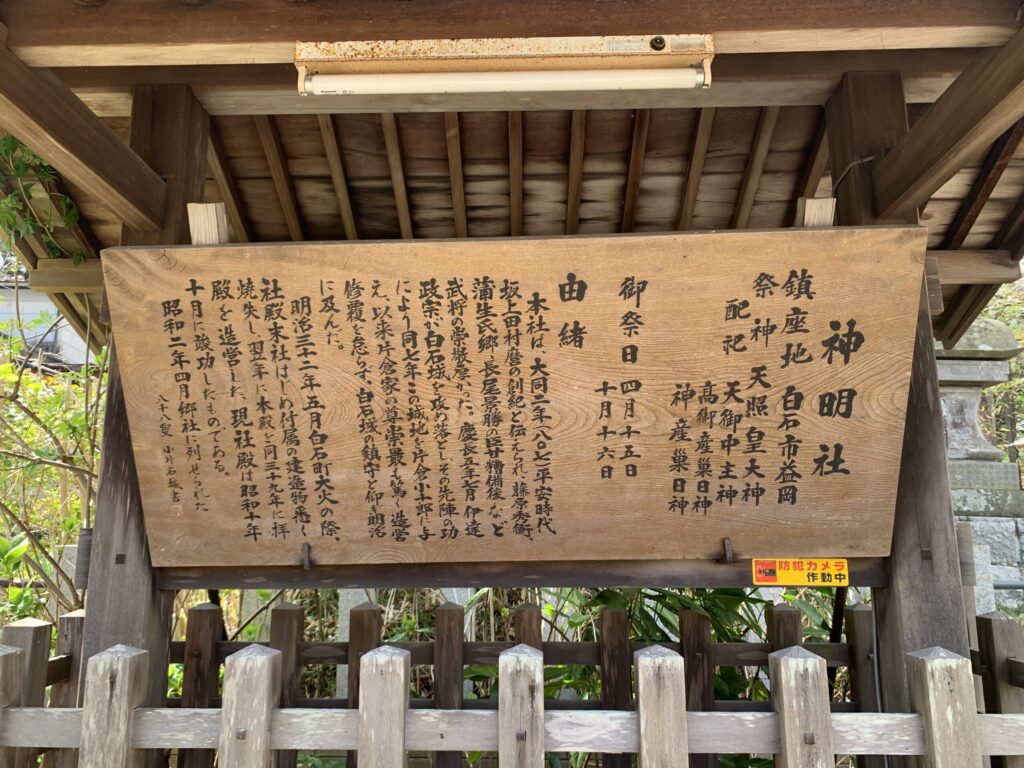 神明社
鎮座地 白石市益岡
祭神 天照皇大神
配祀 天御中主神
高御産巣日神
神産巣日神
御祭日 四月十五日
十月十六日
由緒
本社は、大同二年(八〇七)平安時代
坂上田村麿の創祀と伝えられ、藤原秀衡、
蒲生氏郷、
武将の崇敬
慶長五年七月、伊達
政宗が白石城を攻め落としその先陣の功
により同七年この城地を片倉小十郎に与
え、以来片倉家の尊崇最も篤く造営
修覆を怠らず、白石城の鎮守と仰ぎ明治
に及んだ。
明治三十二年五月白石町大火の際、
社殿末社はじめ付属の建造物悉く
焼失し、翌年に本殿を同三十九年に拝
殿を造営した。現社殿は昭和十年
十月に竣功したものである。
昭和二年四月郷社に列せられた
八十八叟 小片
書
防犯カメラ
作動中
Panasonic